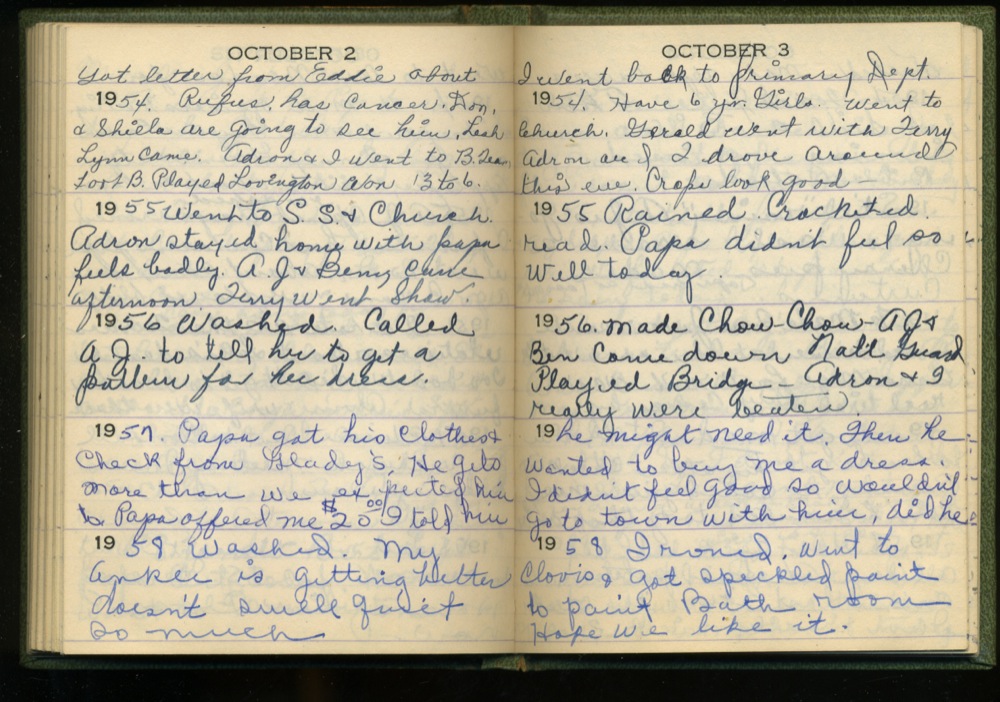 OCTOBER 2
Got letter from Eddie about
1954. Rufus, has Cancer. Don,
& Shiela are going to see him, Leah
Lynn Came. Adron & I went to B. Team
Foot B. Played Lovington Won 13 to 6.
1955 Went to S. S. & Church.
Adron stayed home with papa
feels badly. A.J & Beny came
afternoon Terry went Show.
1956 Washed. Called
A.J. to tell her to get a
pattern for her dress.
1957. Papa got his Clothes &
Check from Glady's, He gets
more than we expected him
to Papa offered me $20.00 I told him
1958 Washed. My
ankle is getting better
doesn't swell quiet
so much
OCTOBER 3
I went back to Primary Dept.
1954. Have 6 yr. Girls. Went to
Church. Gerald went with Terry
Adron and I drove around
this eve. Crops look good —
1955 Rained. Crocheted.
read. Papa didn't feel so
well today.
1956. Made Chow-Chow — A.J &
Ben Came down Natl Guard
Played Bridge — Adron & I
really were beaten.
19 he might need it. Then he
wanted to buy me a dress.
I didn't feel good so wouldn't
go to town with him, did he
1958 Ironed. Went to
Clovis & got speckled paint
to paint Bath room
Hope we like it.